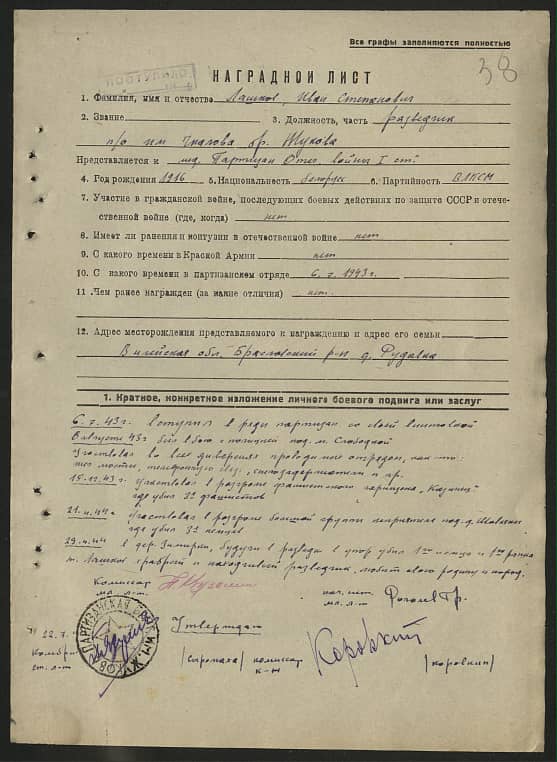 Все графы заполняются полностью
38
ПОСТУПИЛО
НАГРАДНОЙ ЛИСТ
1. Фамилия, имя и отчество Лашков, Иван Степанович
2. Звание 3. Должность, часть разведчик
п/о им Чкалова бр. Жукова
Представляется к мед. Партизан Отеч. войны I ст.
4. Год рождения 1916 5. Национальность белорус 6. Партийность ВЛКСМ
7. Участие в гражданской войне, последующих боевых действиях по защите СССР и отече-
ственной войне (где, когда) нет
8. Имеет ли ранения и контузии в отечественной войне нет
9. С какого времени в Красной Армии нет
10. С какого времени в партизанском отряде 6.7.1943 г.
11. Чем ранее награжден (за какие отличия) нет.
12. Адрес месторождения представляемого к награждению и адрес его семьи
Вилейская обл. Браславский р-н д. Рудавка
1. Краткое, конкретное изложение личного боевого подвига или заслуг
6.7.43 г. вступил в ряды партизан со своей винтовкой
В августе 43 г был в бою с полицией под м. Слободкой
Участвовал во всех диверсиях проводимые отрядом, как-то:
мосты, телефонную связь, снегозадержатели и пр.
15.12.43 г. Участвовал в разгроме фашистского гарнизона "Казинец"
где убил 2х фашистов
21.4.44 г Участвовал в разгроме большой группы неприятеля под д.
где убил 3х немцев
29.4.44 в дер. Зимирин, будучи в разведке в упор убил 1го немца и 1го ранил
т. Лашков храбрый и находчивый разведчик, любит свою родину и народ.
Комиссар
мл. л-т.
нач. шт.
мл. л-т Роголев Гр.
Утверждаю
22.7.
Комбриг
ст. л-т
ПАРТИЗАНСКАЯ ИМ. ЖУКОВ
(сиромаха) комиссар
к-н
Коровкин
(коровкин)